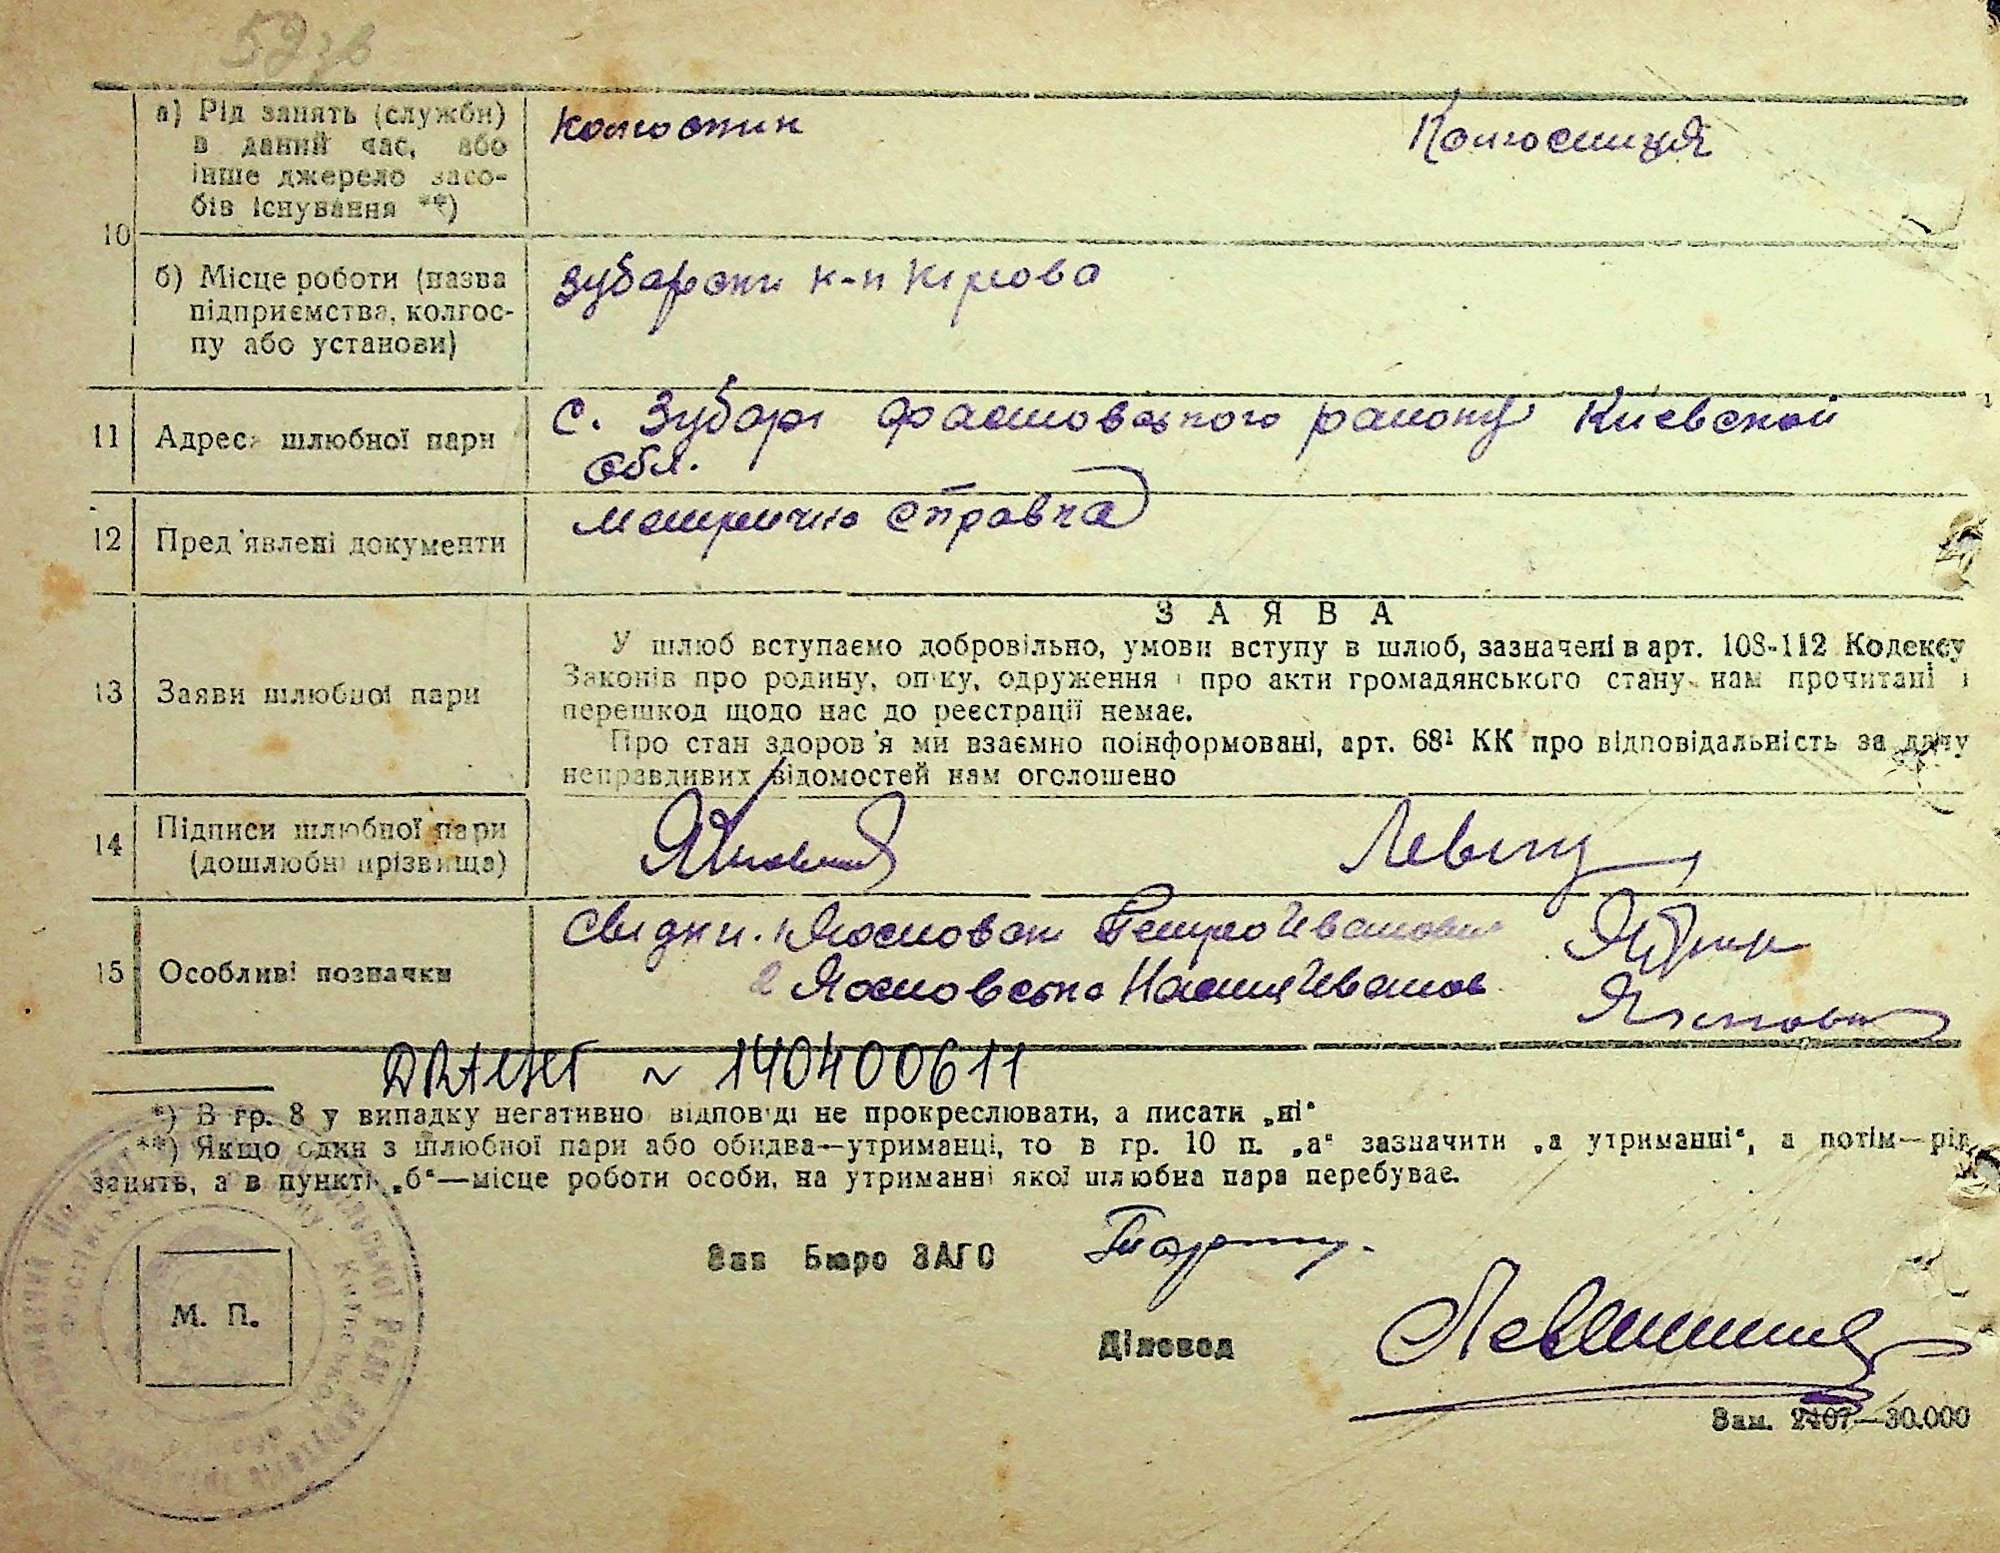 10
а) Рід занять (служби)
в даний час, або
інше джерело засо-
бів існування **)
Колгоспник
Колгоспниця
б) Місце роботи (назва
підприємства, колгос-
пу або установи)
к-п Кірова
11 Адреса шлюбної пари
с. Зубарі району Киевской
обл.
12 Пред'явлені документи
справка
13 Заяви шлюбної пари
ЗАЯВА
У шлюб вступаємо добровільно, умови вступу в шлюб, зазначені в арт. 108-112 Кодексу
Законів про родину, опіку, одруження і про акти громадянського стану нам прочитані і
перешкод щодо нас до реєстрації немає.
Про стан здоров'я ми взаємно поінформовані, арт. 68¹ КК про відповідальність за дачу
неправдивих відомостей нам оголошено
14 Підписи шлюбної пари
(дошлюбні прізвища)
15 Особливі позначки
Свидки. Петро Иванович
2 Настя Иванов
№ 140400611
*) В гр. 8 у випадку негативної відповіді не прокреслювати, а писати „ні“
**) Якщо один з шлюбної пари або обидва—утриманці, то в гр. 10 п. „а“ зазначити „а утриманні“, а потім—рід
занять, а в пункті „б“—місце роботи особи, на утриманні якої шлюбна пара перебуває.
Зав Бюро ЗАГС
М. П.
Діловод
Зам. 2407—30.000